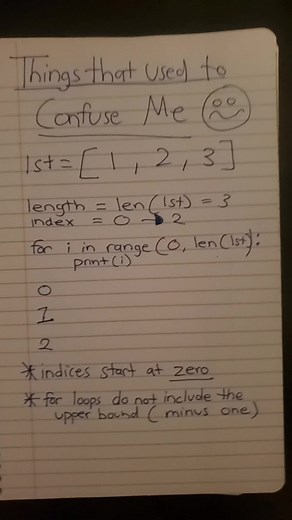 Things that used to
Confuse Me
lst = [1, 2, 3]
length = len(lst) = 3
index = 0 → 2
for i in range(0, len(lst):
print(i)
0
1
2
* indices start at zero
* for loops do not include the
upper bound (minus one)